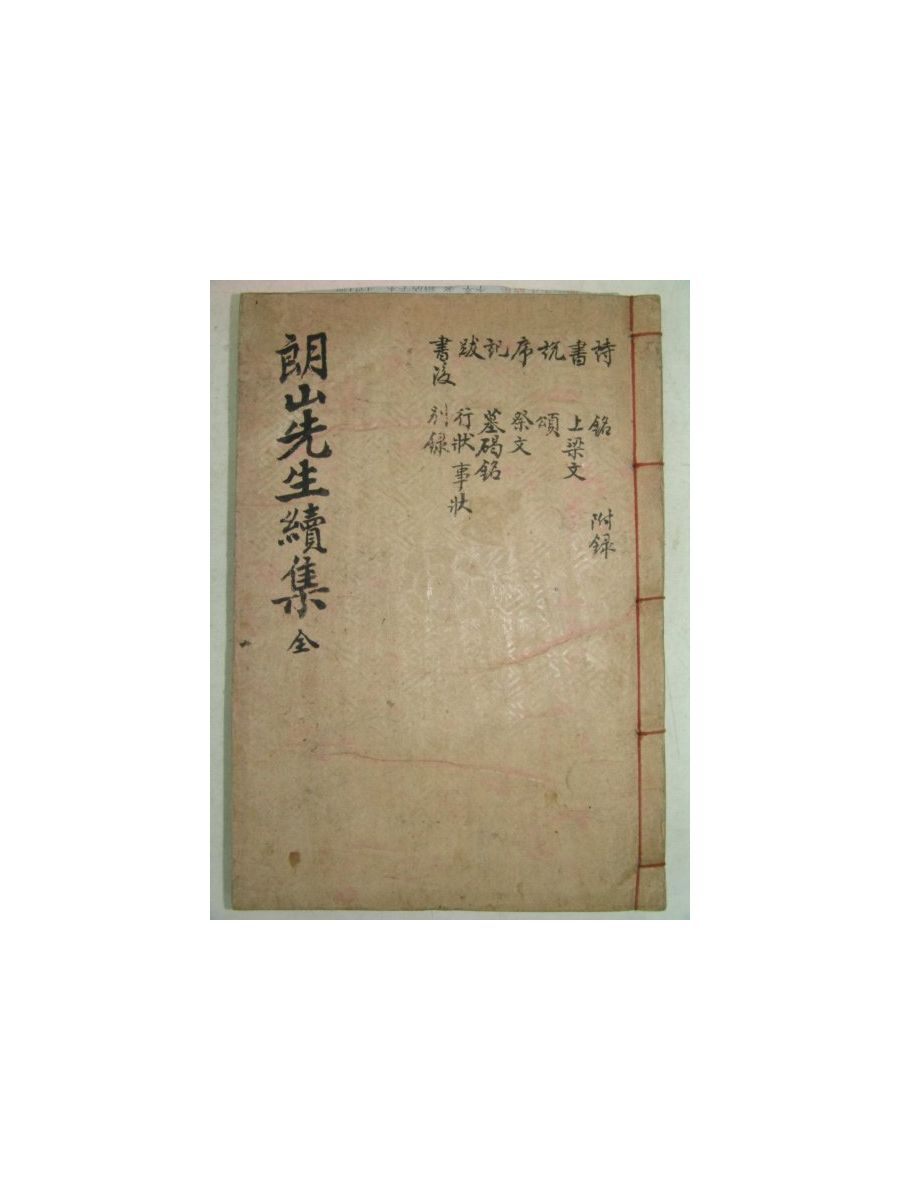 詩 銘 附録
書 上梁文
説 頌
序 祭文
記 墓碣銘
跋 行狀 事狀
書後 別録
朗山先生續集 全